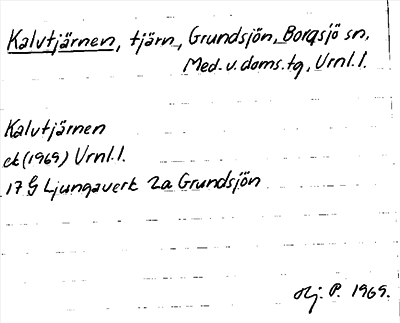 Kalvtjärnen, tjärn, Grundsjön, Borgsjö sn,
Med. v. doms. tg, Vrnl. l.
Kalvtjärnen
ek (1969) Vrnl. l.
17 G Ljungaverk 2a Grundsjön
P. 1969.